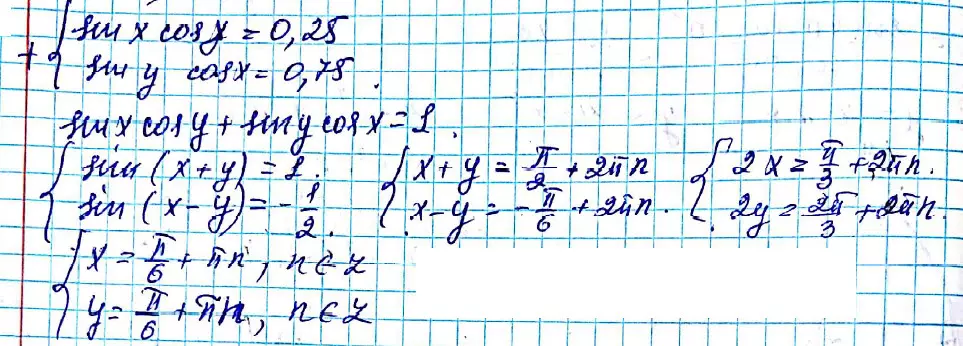 + { sin x cos y = 0,25
sin y cos x = 0,75.
sin x cos y + sin y cos x = 1.
{ sin (x + y) = 1. { x + y = π/2 + 2πn { 2x = π/3 + 2πn.
sin (x - y) = -1/2. x - y = -π/6 + 2πn. 2y = 2π/3 + 2πn.
{ x = π/6 + πn, n ∈ Z
y = π/6 + πn, n ∈ Z